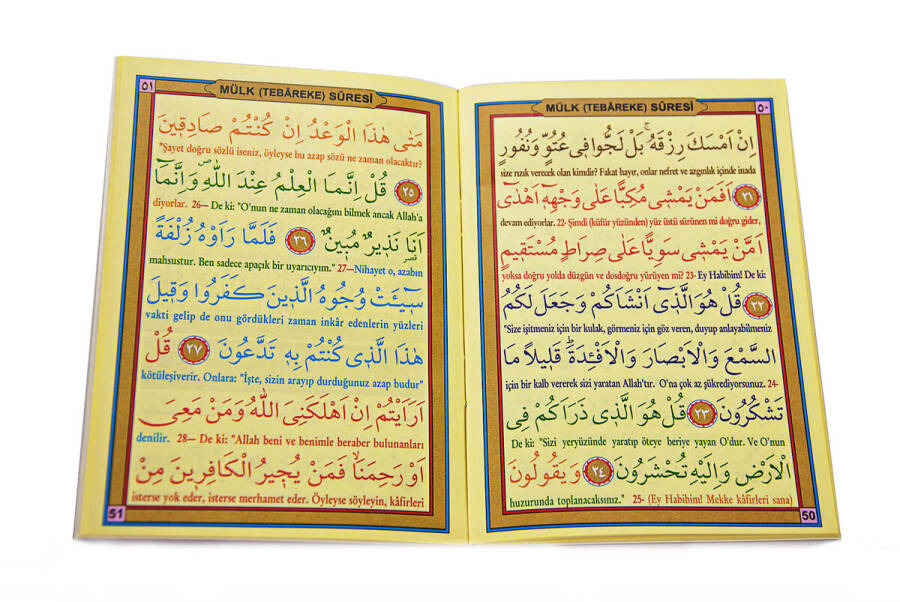 ٥٠
MÜLK (TEBÂREKE) SÛRESİ
اِنْ اَمْسَكَ رِزْقَهُۚ بَلْ لَجُّوا فٖى عُتُوٍّ وَنُفُورٍ
size rızık verecek olan kimdir? Fakat hayır, onlar nefret ve azgınlık içinde inada
﴿٢١﴾ اَفَمَنْ يَمْشٖى مُكِبًّا عَلٰى وَجْهِهٖٓ اَهْدٰٓى
devam ediyorlar. 22- Şimdi (küfür yüzünden) yüz üstü sürünen mi doğru gider,
اَمَّنْ يَمْشٖى سَوِيًّا عَلٰى صِرَاطٍ مُسْتَقٖيمٍ
yoksa doğru yolda düzgün ve dosdoğru yürüyen mi? 23- Ey Habibim! De ki:
﴿٢٢﴾ قُلْ هُوَ الَّذٖٓى اَنْشَاَكُمْ وَجَعَلَ لَكُمُ
"Size işitmeniz için bir kulak, görmeniz için göz veren, duyup anlayabilmeniz
السَّمْعَ وَالْاَبْصَارَ وَالْاَفْـِٔدَةَؕ قَلٖيلًا مَا
için bir kalb vererek sizi yaratan Allah'tır. O'na çok az şükrediyorsunuz. 24-
تَشْكُرُونَ ﴿٢٣﴾ قُلْ هُوَ الَّذٖى ذَرَاَكُمْ فِى
De ki: "Sizi yeryüzünde yaratıp öteye beriye yayan O'dur. Ve O'nun
الْاَرْضِ وَاِلَيْهِ تُحْشَرُونَ ﴿٢٤﴾ وَيَقُولُونَ
huzurunda toplanacaksınız." 25- (Ey Habibim! Mekke kâfirleri sana)
50
٥١
MÜLK (TEBÂREKE) SÛRESİ
مَتٰى هٰذَا الْوَعْدُ اِنْ كُنْتُمْ صَادِقٖينَ
"Şayet doğru sözlü iseniz, öyleyse bu azap sözü ne zaman olacaktır?
﴿٢٥﴾ قُلْ اِنَّمَا الْعِلْمُ عِنْدَ اللّٰهِࣕ وَاِنَّمَٓا
diyorlar. 26— De ki: "O'nun ne zaman olacağını bilmek ancak Allah'a
اَنَا۬ نَذٖيرٌ مُبٖينٌ ﴿٢٦﴾ فَلَمَّا رَاَوْهُ زُلْفَةً
mahsustur. Ben sadece apaçık bir uyarıcıyım." 27—Nihayet o, azabın
سٖٓيـَٔتْ وُجُوهُ الَّذٖينَ كَفَرُوا وَقٖيلَ
vakti gelip de onu gördükleri zaman inkâr edenlerin yüzleri
هٰذَا الَّذٖى كُنْتُمْ بِهٖ تَدَّعُونَ ﴿٢٧﴾ قُلْ
kötüleşiverir. Onlara: "İşte, sizin arayıp durduğunuz azap budur"
اَرَاَيْتُمْ اِنْ اَهْلَكَنِىَ اللّٰهُ وَمَنْ مَعِىَ
denilir. 28— De ki: "Allah beni ve benimle beraber bulunanları
اَوْ رَحِمَنَاۙ فَمَنْ يُجٖيرُ الْكَافِرٖينَ مِنْ
isterse yok eder, isterse merhamet eder. Öyleyse söyleyin, kâfirleri
51